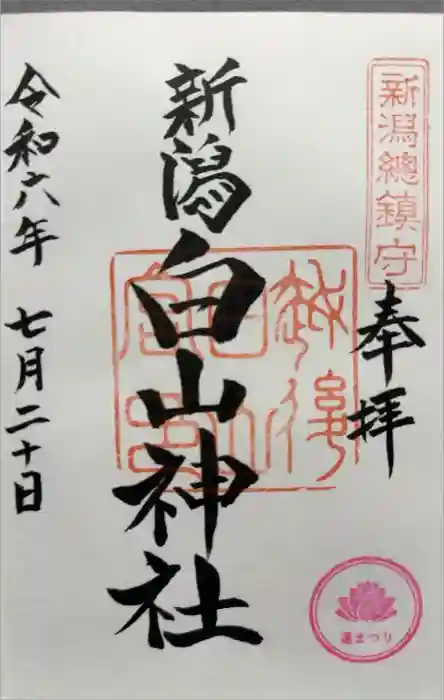 新潟總鎮守
奉拝
越後
白山
宮印
新潟白山神社
令和六年 七月二十日
蓮まつり